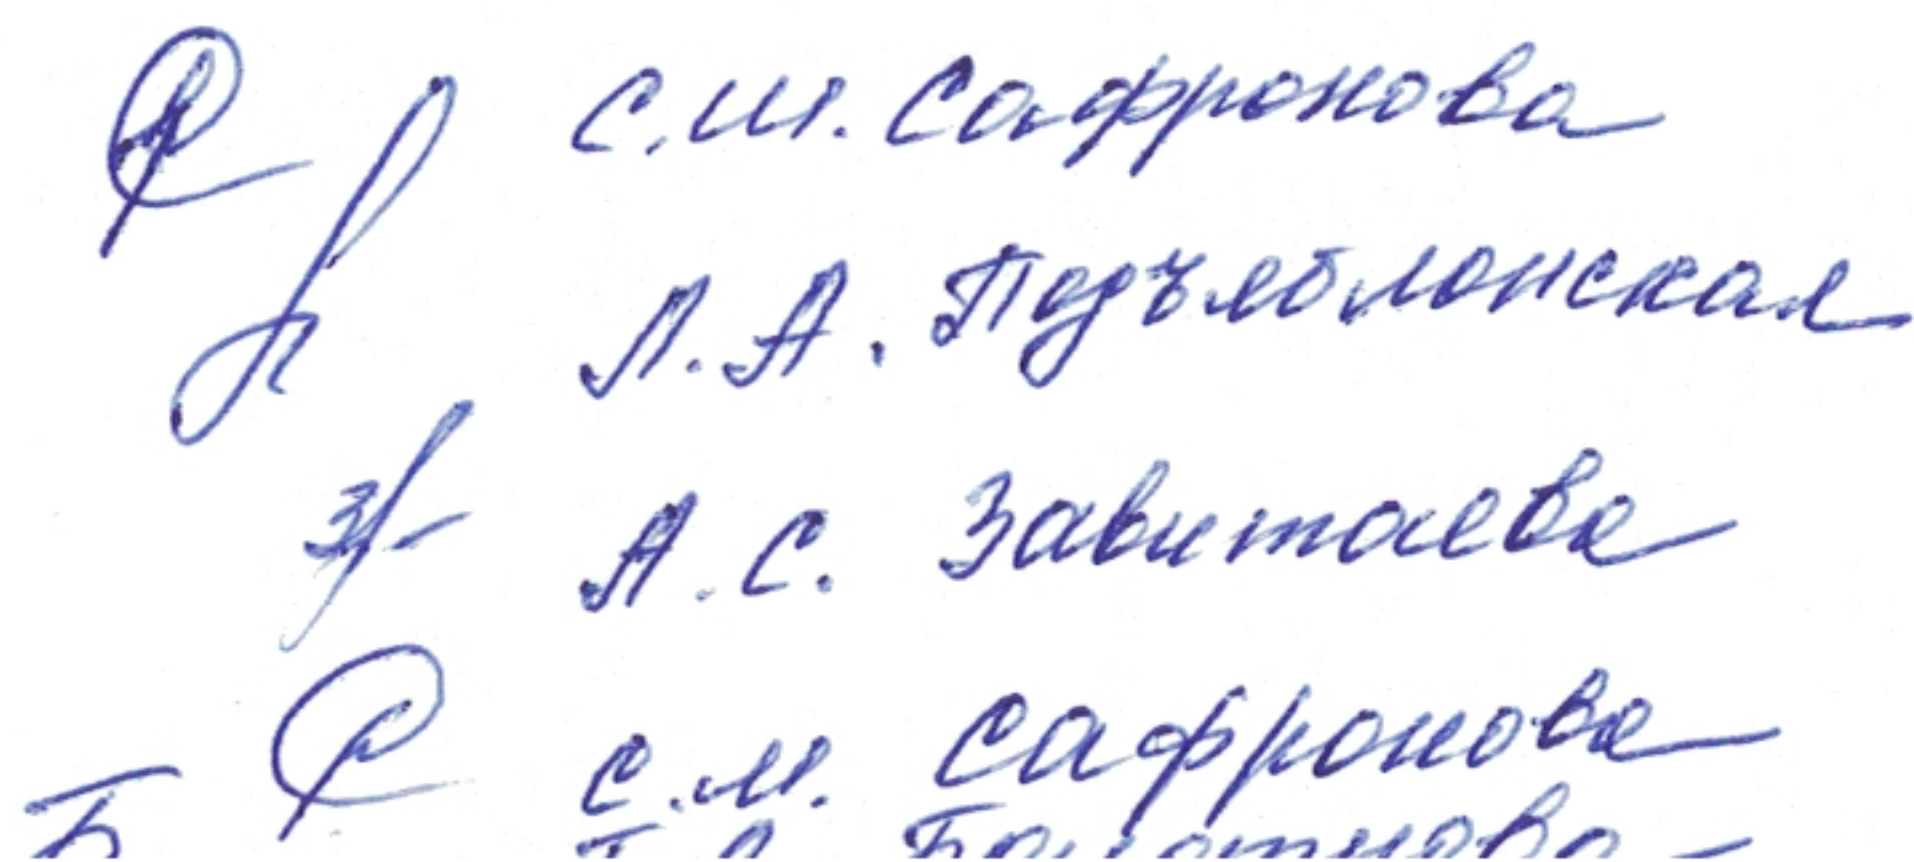 С.М. Сафронова
Л.А. Подъяблонская
А.С. Завитаева
С.М. Сафронова